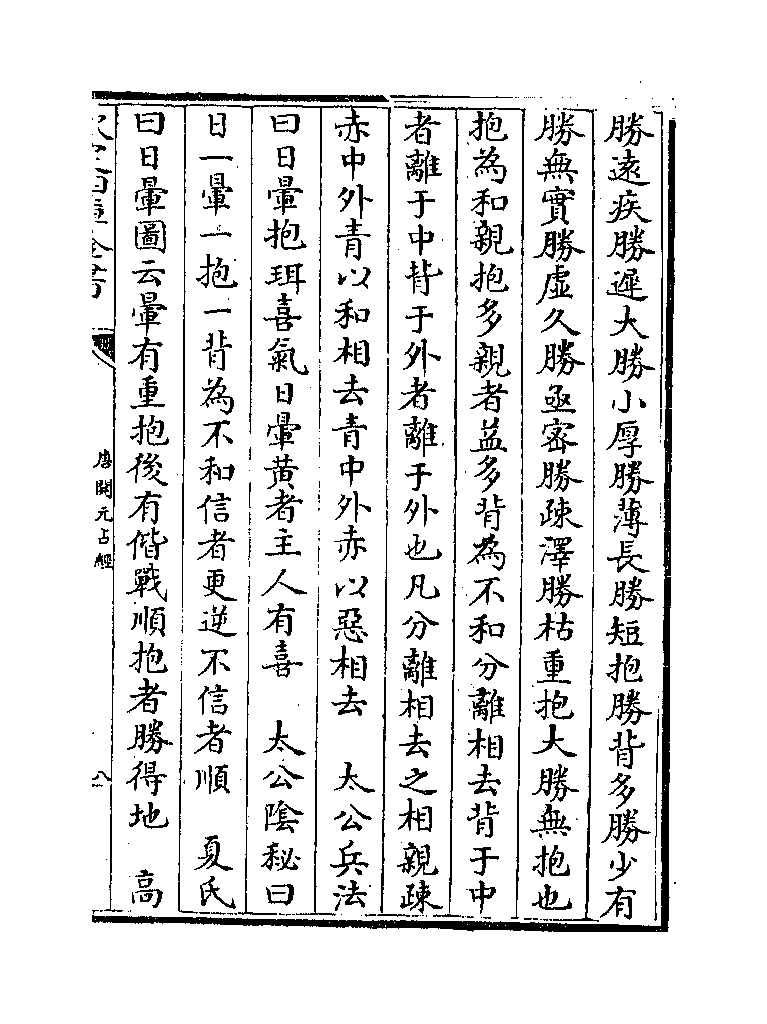 勝遠疾勝遲大勝小厚勝薄長勝短抱勝背多勝少有
勝無實勝虛久勝亟密勝疎澤勝枯重抱大勝無抱也
抱為和親抱多親者益多背為不和分離相去背于中
者離于中背于外者離于外也凡分離相去之相親疎
赤中外青以和相去青中外赤以惡相去　太公兵法
曰日暈抱珥喜氣日暈黄者主人有喜　太公陰秘曰
日一暈一抱一背為不和信者更逆不信者順　夏氏
曰日暈圖云暈有重抱後有偕戰順抱者勝得地　高
唐開元占經
八